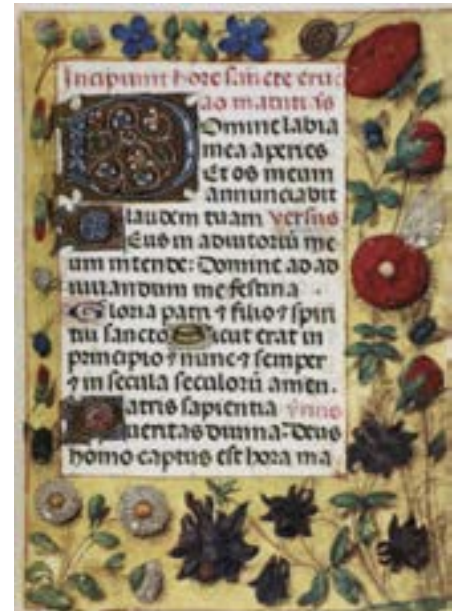 Incipiunt hore sancte cruc
ad matutinis
Domine labia
mea aperies
Et os meum
annunciabit
laudem tuam versus
Deus in adiutoriū me
um intende: Domine ad ad
iuuandum me festina
Gloria patri ⁊ filio ⁊ spiri
tui sancto Sicut erat in
principio ⁊ nunc ⁊ semper
⁊ in secula seculorū amen.
Patris sapientia ymnus
ueritas diuina: Deus
homo captus est hora ma